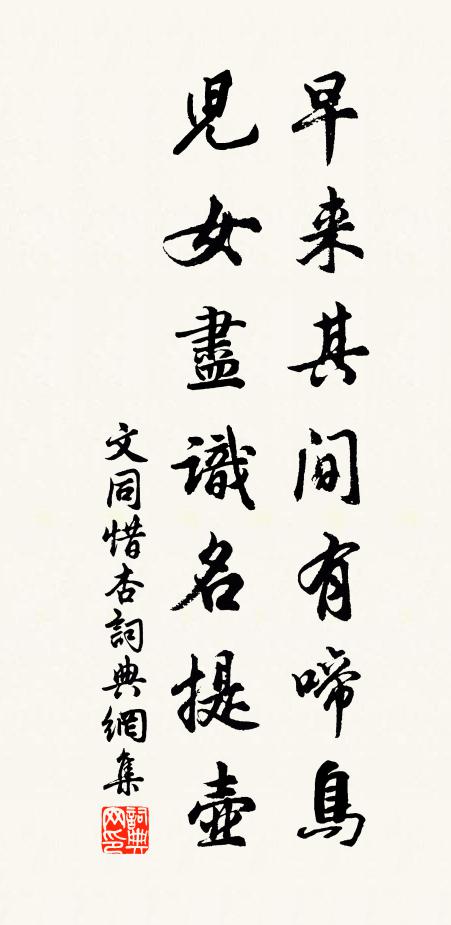 早来其间有啼鳥
児女盡識名提壺
文同惜杏詞典網集
詞典網印